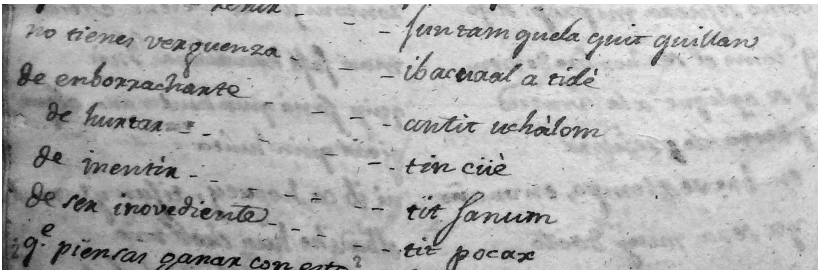 no tienes verguenza - - - juntam quela quit quillan
de enborracharte - - - ibacuxal a tidè
de hurtar - - - - antit uchàlom
de mentir - - - - tin cüè
de ser inovediente - - - - tit sanum
¿q.e piensas ganar con esto? - - tit pocax